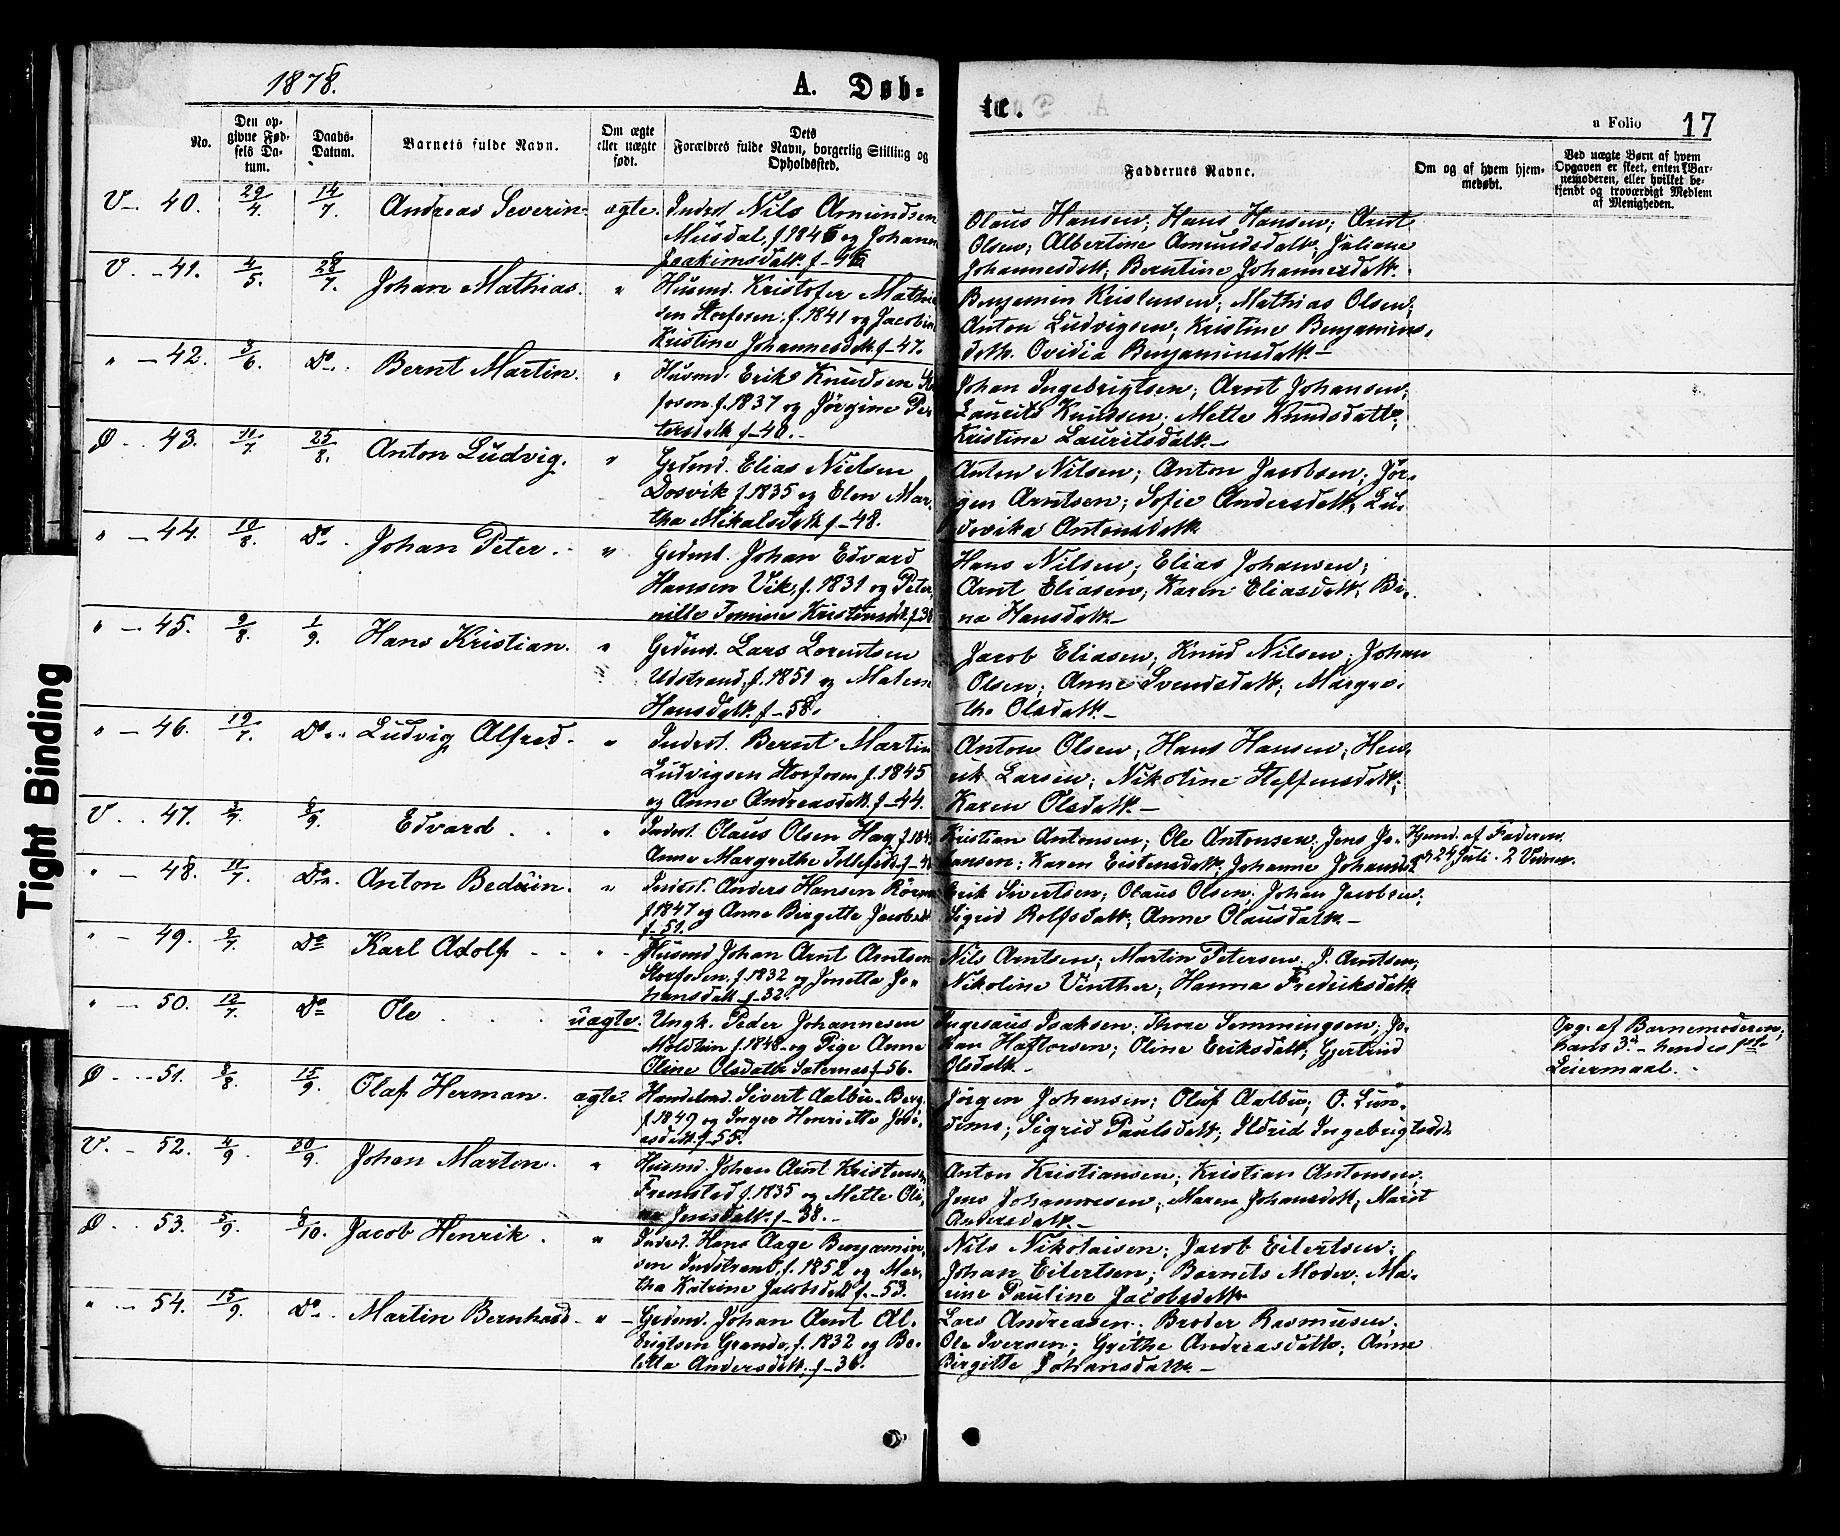 1878.
A. Døb-
te.
a Folio 17
No.
Den op-
givne Fød-
sels Da-
tum.
Daabs-
Datum.
Barnets fulde Navn.
Om ægte
eller uægte
født.
Dets
Forældres fulde Navn, borgerlig Stilling og
Opholdssted.
Faddernes Navne.
Om og af hvem hjem-
medøbt.
Ved uægte Børn af hvem
Opgaven er skeet, enten Bar-
nemoderen, eller hvilket be-
kjendt og troværdigt Medlem
af Menigheden.
V. - 40. 29/4. 14/7. Andreas Severin. ægte. Inderst Nils Amundsen
Musdal, f. 1846 og Johanne
Joakimsdatt. f. - 46.
Olaus Hansen; Hans Hansen; Arnt
Olsen; Albertine Amundsdatt; Juliane
Johannesdatt; Berntine Johannesdatt.
V. - 41. 4/5. 28/7. Johan Mathias. " Husmd. Kristofer Mathi-
sen Storfosen, f. 1841 og Jacobine
Kristine Johannesdatt. f. - 47.
Benjamin Kristensen; Mathias Olsen;
Anton Ludvigsen; Kristine Benjamins-
datt. Ovidia Benjaminsdatt. -
" - 42. 3/6. Do. Bernt Martin. " Husmd. Erik Knudsen Stor-
fosen f. 1837 og Jørgine Pe-
tersdatt f. - 40. -
Johan Ingebrigtsen; Arnt Johansen;
Laurits Knudsen; Mette Knudsdatt;
Kristine Lauritsdatt. -
Ø. - 43. 11/7. 25/8. Anton Ludvig. " Gedmd. Elias Nielsen
Dosvik f. 1835 og Elen Mar-
tha Mikalsdatt f. - 48.
Anton Nilsen; Anton Jacobsen; Jør-
gen Arntsen; Sofie Andersdatt; Lu-
dovika Antonsdatt.
" - 44. 10/8. Do. Johan Peter. " Gedmd. Johan Edvard
Hansen Vik, f. 1831 og Peter-
nille Kristensdatt. f. 38
Hans Nilsen; Elias Johansen;
Arnt Eliasen; Karen Eliasdatt; Bi-
na Hansdatt. -
" - 45. 9/8. 1/9. Hans Kristian. " Gedmd. Lars Lorentsen
Udstrand, f. 1851 og Malene
Hansdatt. f. - 58.
Jacob Eliasen; Knud Nilsen; Johan
Olsen; Anne Svendsdatt; Margre-
the Olsdatt. -
" - 46. 19/7. Do. Ludvig Alfred. " Inderst. Bernt Martin
Ludvigsen Storfosen f. 1845
og Anne Andreasdatt. f. - 44.
Anton Olsen; Hans Hansen; Hen-
rik Larsen; Nikoline Steffensdatt;
Karen Olsdatt. -
V. - 47. 3/7. 8/9. Edvard. " Inderst. Olaus Olsen Hag f. 184
Anne Margrethe Tollefsd. f. - 4
Kristian Antonsen; Ole Antonsen; Jens Jo-
hansen; Karen Eistensdatt; Johanne Johansd.
Hjemd. af Faderen
24 Juli. 2 Vidner.
" - 48. 11/7. Do. Anton Bedúin. " Inderst. Anders Hansen
f. 1847 og Anne Birgitte Jacobsdatt
f. - 51.
Erik Sivertsen; Olaus Olsen; Johan Jacobsen;
Sigrid Rolfsdatt; Anne Olausdatt. -
" - 49. 2/7. Do. Karl Adolf. " - Husmd Johan Arnt Arntsen
Storfosen, f. 1832 og Jonetta Jo-
hansdatt. f. - 32.
Nils Arntsen; Martin Petersen, J. Arntsen;
Nikoline Vinther; Hanna Fredriksdatt
" - 50. 12/7. Do. Ole uægte. Ungk. Peder Johannesen
Moldtun f. 1848 og Pige Anne
Oline Olsdatt f. 56.
Ingesaus Isaksen; Thore Temmingsen; Jo-
han Haftorsen; Oline Eriksdatt; Gjertrud
Olsdatt. -
Opg. af Barnemoderen;
hans 3die - hendes 1ste
Leiermaal. -
Ø. - 51. 8/8. 15/9. Olaf Herman. ægte. Handelsmd. Sivert Aalbu-Berg
f. 1849 og Inger Henriette
datt f. 55.
Jørgen Johansen; Oluf Aalbu; O. Lun-
demo; Sigrid Paulsdatt; Ildrid Ingebrigtsdt.
V. - 52. 4/9. 30/9. Johan Morten. " Husmd. Johan Arnt Kristensen
Fremstad f. 1835 og Mette Oli-
na Jensdatt. f. - 38. -
Anton Kristiansen; Kristian Antonsen;
Jens Johannesen; Maren Johansdatt; Marit
Andersdatt. -
Ø. - 53. 5/9. 6/10. Jacob Henrik. " Inderst. Hans Aage Benjamin-
sen Indstrand, f. 1852 og Mar-
tha Katrine Jacobsdatt f. - 53.
Nils Nikolaisen; Jacob Eilertsen;
Johan Eilertsen; Barnets Moder; Ma-
rine Pauline Jacobsdatt
" - 54. 15/9. Do. Martin Bernhard - " - Gedmd. Johan Arnt Al-
brigtsen Grande, f. 1832 og Bo-
letta Andersdatt. f. - 36.
Lars Andreasen; Broder Rasmusen;
Ole Iversen; Grethe Andreasdatt; Anne
Birgitte Johansdatt. -
Tight Binding